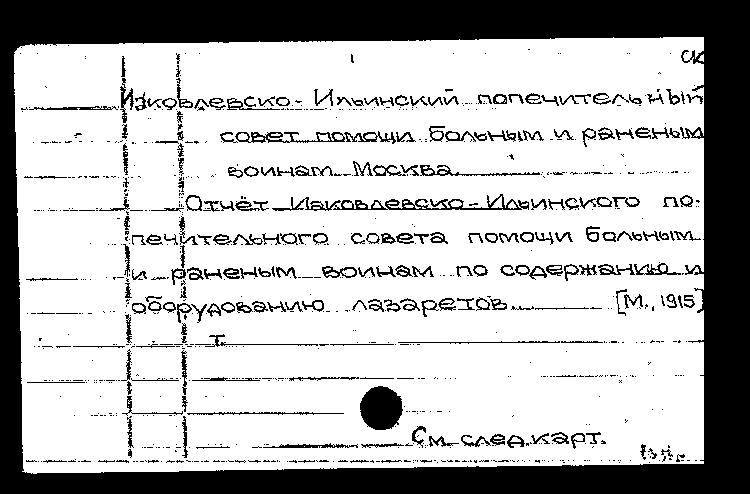 СК
Иаковлевско-Ильинский попечительный
совет помощи больным и раненым
воинам. Москва.
Отчёт Иаковлевско-Ильинского по-
печительного совета помощи больным
и раненым воинам по содержанию и
оборудованию лазаретов... [М., 1915]
т.
См. след. карт.